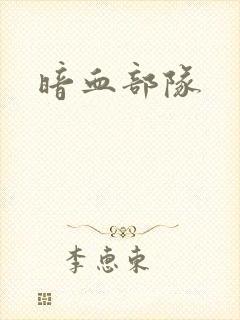 暗血部隊
李惠東